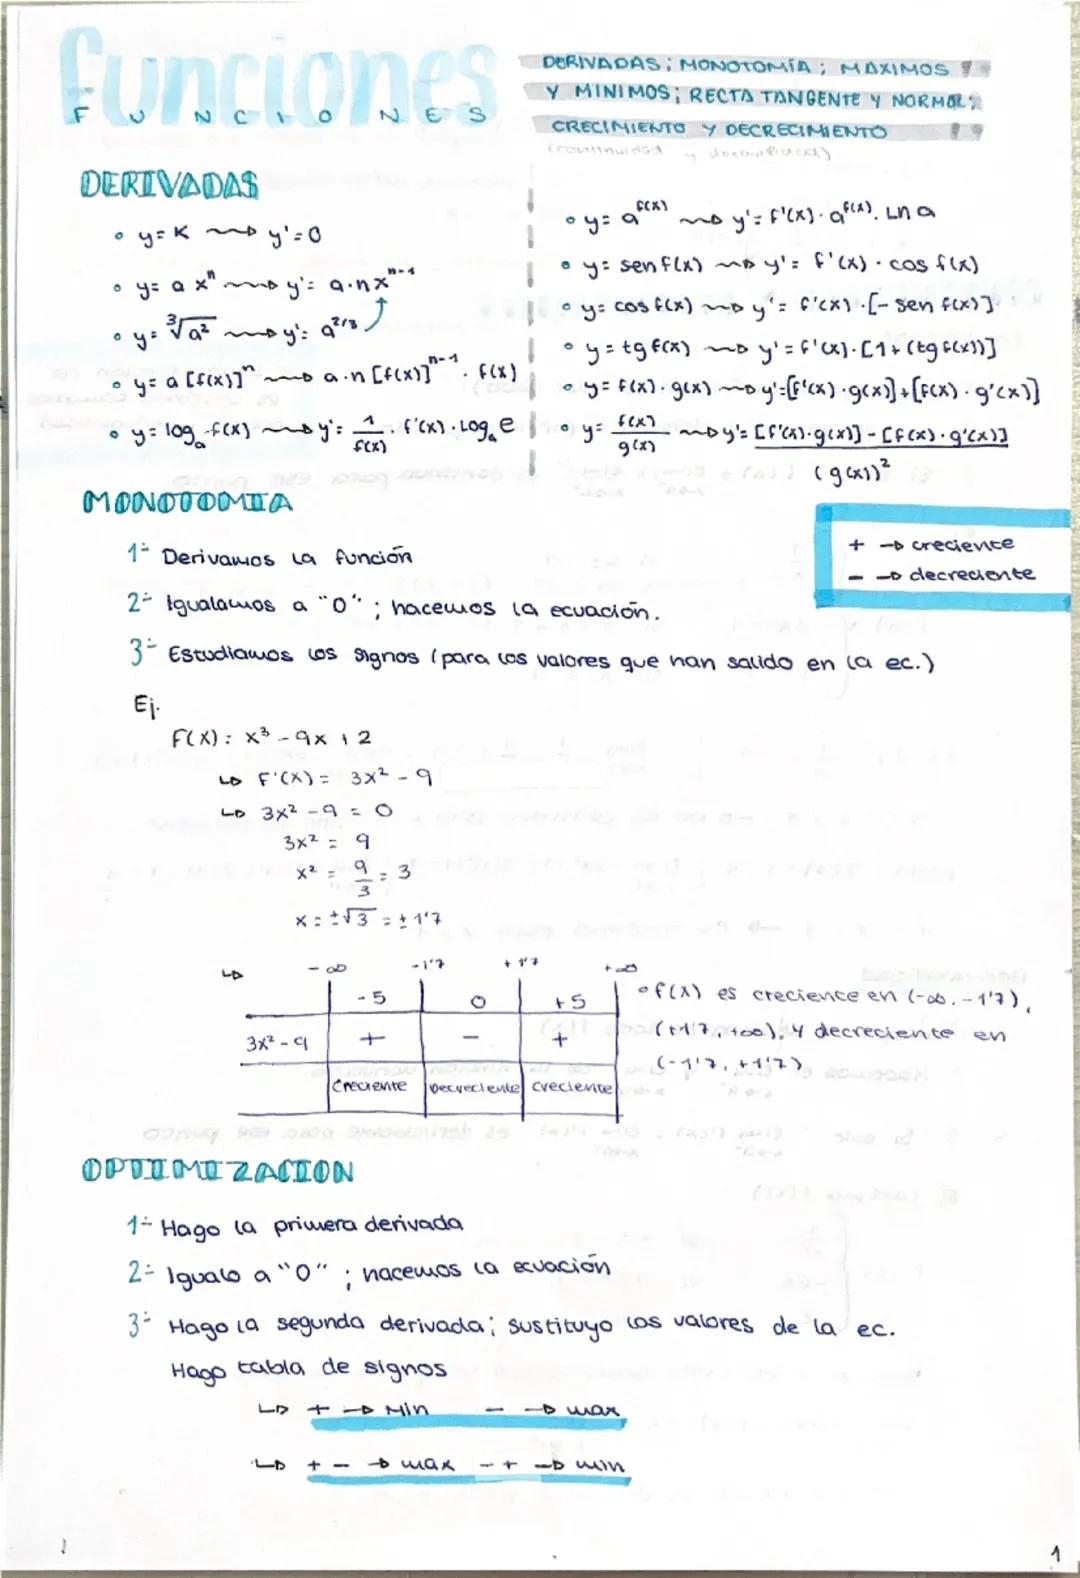 funciones
FUNCIONES
DERIVADAS; MONOTOMÍA; MAXIMOS
Y MINIMOS; RECTA TANGENTE Y NORMAL;
CRECIMIENTO Y DECRECIMIENTO
(continuidad y
DERIVADAS
• y= K → y'=0
• y= a xⁿ → y'= a·nxⁿ⁻¹
• y= ∛a² → y'= a^2/3
• y= a [f(x)]ⁿ → a·n [f(x)]ⁿ⁻¹ · f(x)
• y= logₐ f(x) → y'= 1/f(x) · f'(x)·Logₐ e
• y= a^f(x) → y'= f'(x)· a^f(x). Ln a
• y= sen f(x) → y'= f'(x) · cos f(x)
• y= cos f(x) → y'= f'(x)·[- sen f(x)]
• y= tg f(x) → y'= f'(x)·[1+(tg f(x))]
• y= f(x)·g(x) → y'=[f'(x)·g(x)]+[f(x)·g'(x)]
• y= f(x)/g(x) → y'= [f'(x)·g(x)]-[f(x)·g'(x)]
(g(x))²
MONOTOMIA
+ → creciente
- → decreciente
1- Derivamos la función
2- Igualamos a "0"; hacemos la ecuación.
3- Estudiamos los signos (para los valores que han salido en la ec.)
Ej.
F(X): x³ - 9x + 2
↳ F'(X)= 3x² - 9
↳ 3x² - 9 = 0
3x² = 9
x² = 9/3 = 3
x = ±√3 = ± 1'7
↳ -∞ -1'7 +1'7 +∞
-5 0 +5
3x²-9 + - +
Creciente Decreciente creciente
• f(x) es creciente en (-∞, -1'7),
(+1'7, +∞). Y decreciente en
(-1'7, +1'7)
OPTIMIZACION
1- Hago la primera derivada
2- Igualo a "0"; hacemos la ecuación
3- Hago la segunda derivada; sustituyo los valores de la ec.
Hago tabla de signos
↳ + → Min - → max
↳ + - → max - + → min
1